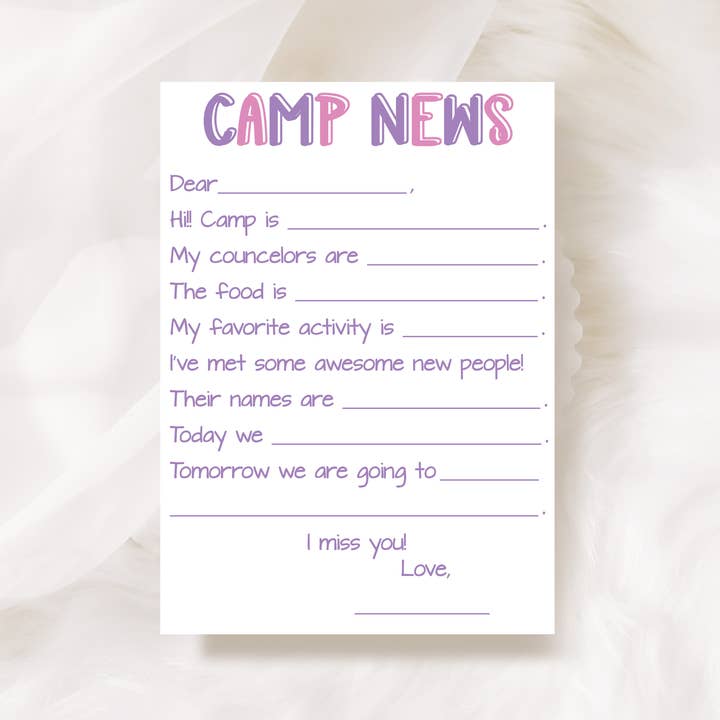 CAMP NEWS
Dear__________________,
Hi!! Camp is ________________________.
My councelors are ________________.
The food is _______________________.
My favorite activity is _____________.
I've met some awesome new people!
Their names are ___________________.
Today we __________________________.
Tomorrow we are going to_________
___________________________________.
I miss you!
Love,
_____________